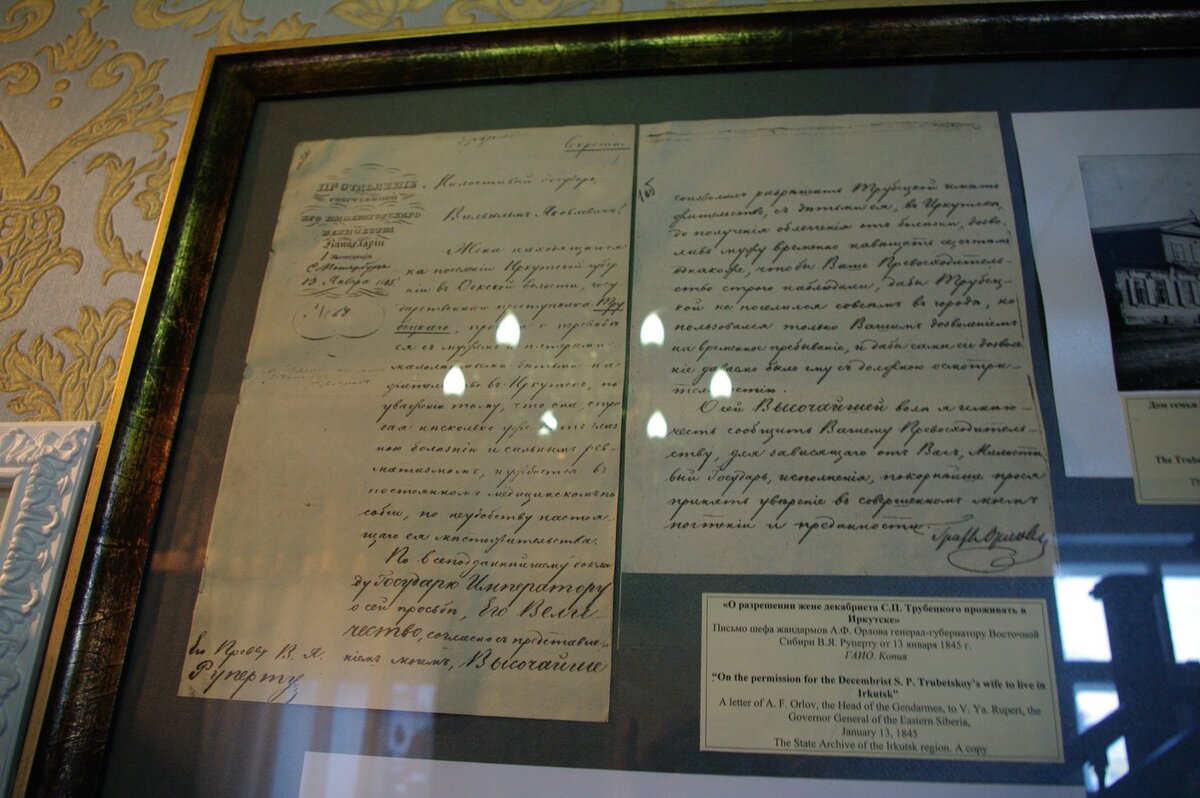 Секретно.
III ОТДѢЛЕНІЕ
СОБСТВЕННОЙ
ЕГО ИМПЕРАТОРСКАГО
ВЕЛИЧЕСТВА
Канцеляріи
С. Петербургъ
13 Января 1845
№ 64
Милостивый Государь
Вильгельмъ Яковлевичъ!
Жена находящагося
на поселеніи Иркутской губер
ніи въ Оекской волости, госу
дарственнаго преступника Тру
бецкаго, проситъ о перевод
ся съ мужемъ и
малолѣтными дѣтьми на
жительство въ Иркутскъ, по
уваженію тому, что она, стра
дая нѣсколько лѣтъ
ною болѣзнію и сильнымъ рев
матизмомъ, нуждается въ
постоянномъ медицинскомъ по
собіи, по неудобству настоя-
щаго ея мѣстожительства.
По всеподданнѣйшему докла
ду Государю Императору
о сей просьбѣ, Его Вели-
чество, согласно съ представле-
ніемъ моимъ, Высочайше
Его Превву В. Я.
Руперту
соизволилъ разрѣшить Трубецкой имѣть
жительство, съ дѣтьми ея, въ Иркутскѣ,
до полученія облегченія отъ болѣзни, дозво-
ливъ мужу временно навѣщать
однакоже, чтобы Ваше Превосходитель-
ство строго наблюдали, дабы Трубец-
кой не поселился совсѣмъ въ городѣ, но
пользовался только Вашимъ дозволеніемъ
на временное пребываніе, и дабы самое дозволе
ніе давано было ему съ должною осмотри-
тельностію.
О сей Высочайшей волѣ я имѣю
честь сообщить Вашему Превосходитель-
ству, для зависящаго отъ Васъ, Милости
вый Государь, исполненія, покорнѣйше прося
принять увѣреніе въ совершенномъ моемъ
почтеніи и преданности.
Графъ Орловъ
«О разрешении жене декабриста С.П. Трубецкого проживать в
Иркутске»
Письмо шефа жандармов А.Ф. Орлова генерал-губернатору Восточной
Сибири В.Я. Руперту от 13 января 1845 г.
ГАИО. Копия
"On the permission for the Decembrist S. P. Trubetskoy's wife to live in
Irkutsk"
A letter of A. F. Orlov, the Head of the Gendarmes, to V. Ya. Rupert, the
Governor General of the Eastern Siberia,
January 13, 1845
The State Archive of the Irkutsk region. A copy
Дом семьи
The